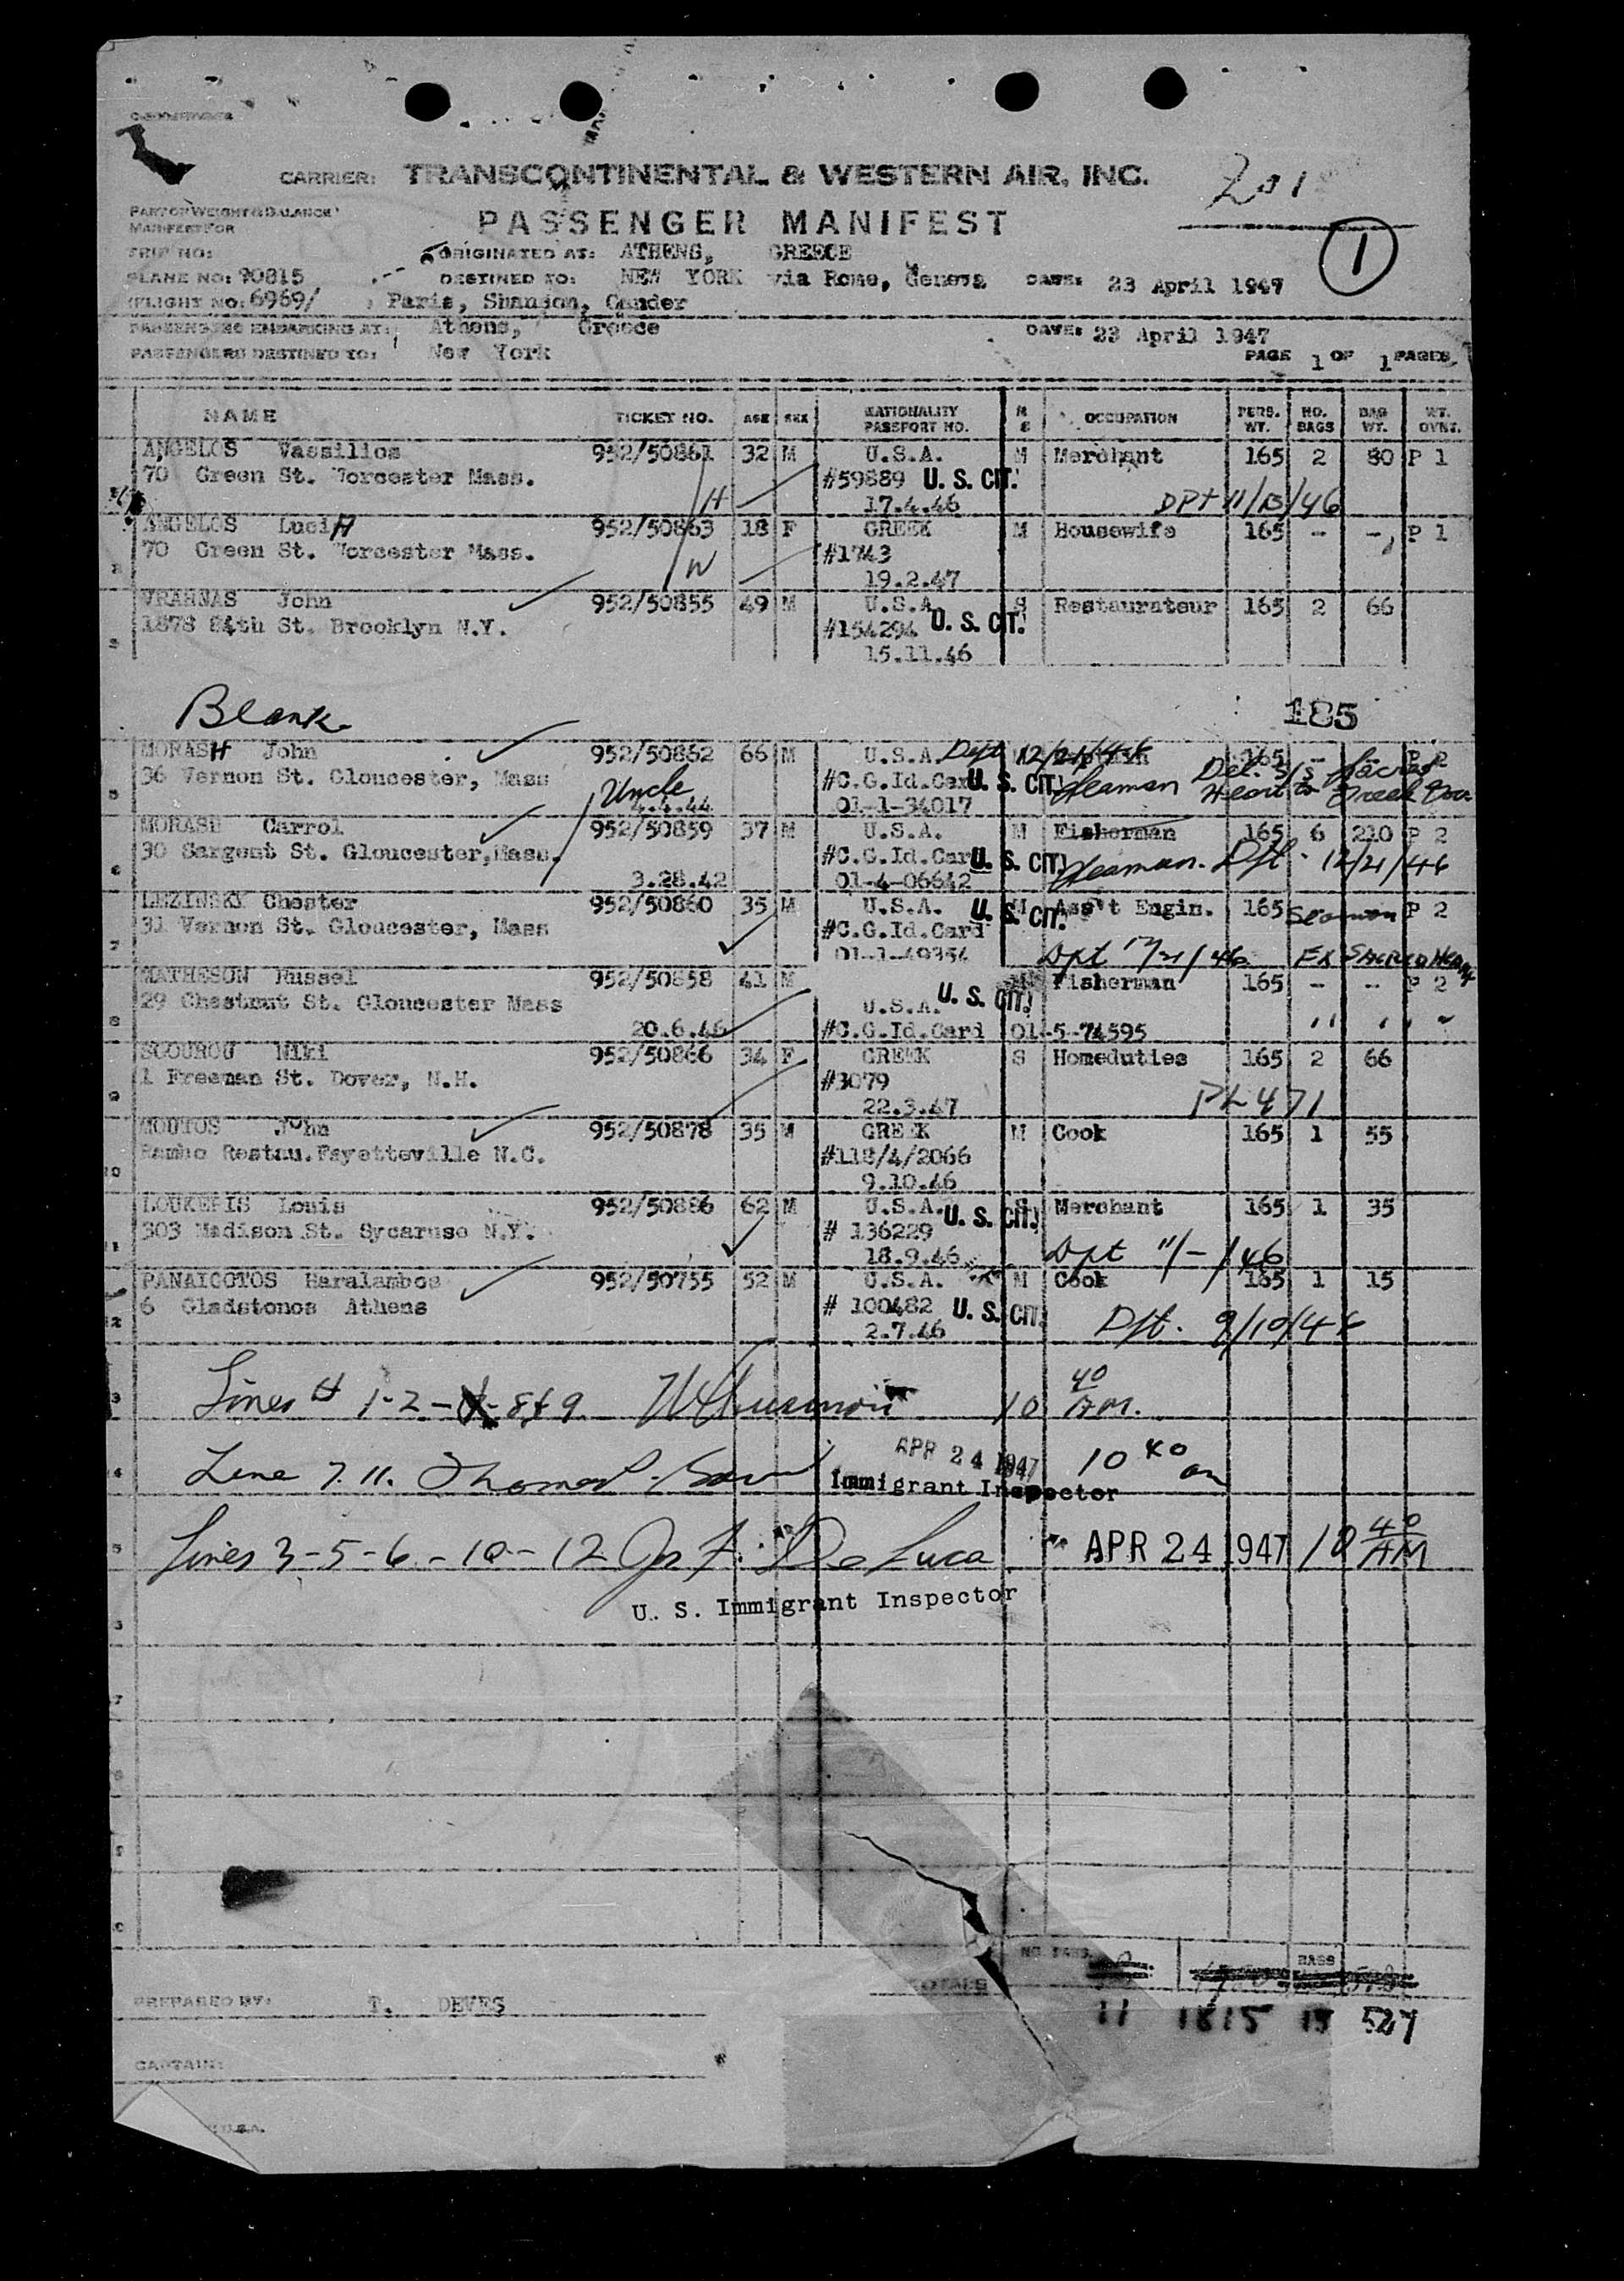 201
CARRIER: TRANSCONTINENTAL & WESTERN AIR, INC.
PART OF WEIGHT & BALANCE
MANIFEST FOR
PASSENGER MANIFEST
1
TRIP NO:
ORIGINATED AT: ATHENS, GREECE
PLANE NO: 90815
DESTINED TO: NEW YORK via Rome, Geneva DATE: 23 April 1947
FLIGHT NO: 6969/ Paris, Shannon, Gander
PASSENGERS EMBARKING AT: Athens, Greece DATE: 23 April 1947
PASSENGERS DESTINED TO: New York PAGE 1 OF 1 PAGES
NAME TICKET NO. AGE SEX NATIONALITY PASSPORT NO. M S OCCUPATION PERS. WT. NO. BAGS BAG WT. WT. OVNT.
ANGELOS Vassilios 952/50861 32 M U.S.A. M Merchant 165 2 80 P 1
70 Green St. Worcester Mass. #59889 U. S. CIT.
H 17.4.46 DPT 11/13/46
ANGELOS LuciH 952/50863 18 F GREEK M Housewife 165 - - P 1
70 Green St. Worcester Mass. #1743
W 19.2.47
VRAHNAS John 952/50855 49 M U.S.A. S Restaurateur 165 2 66
1878 84th St. Brooklyn N.Y. #154294 U. S. CIT.
15.11.46
Blank
185
MORASH John 952/50862 66 M U.S.A. Dept 12/21/46 165 - P 2
36 Vernon St. Gloucester, Mass #C.G.Id.Card U. S. CIT. Seaman Del. S/S Sacred
Uncle 4.4.44 01-1-34017 Heart to Greek Gov.
MORASH Carrol 952/50859 37 M U.S.A. M Fisherman 165 6 210 P 2
30 Sargent St. Gloucester, Mass. #C.G.Id.Card U. S. CIT. Seaman. Dpt. 12/21/46
3.28.42 01-4-06642
LEZINSKY Chester 952/50860 35 M U.S.A. U. S. CIT. M Ass't Engin. 165 Seaman P 2
31 Vernon St. Gloucester, Mass #C.G.Id.Card
01-1-49354 Dpt 12/21/46 EX SACRED HEART
MATHESON Russel 952/50858 41 M Fisherman 165 - - P 2
29 Chestnut St. Gloucester Mass U.S.A. U. S. CIT.
20.6.46 #C.G.Id.Card 01-5-74595 " " "
SGOUROU Niki 952/50866 34 F GREEK S Homeduties 165 2 66
1 Freeman St. Dover, N.H. #3079
22.3.47 PL 471
MOUTOS John 952/50878 35 M GREEK M Cook 165 1 55
Rambo Restau. Fayetteville N.C. #118/4/2066
9.10.46
LOUKEFIS Louis 952/50886 62 M U.S.A. S Merchant 165 1 35
303 Madison St. Sycaruse N.Y. # 136229 U. S. CIT.
18.9.46 Dpt 11/-/46
PANAICOTOS Haralambos 952/50755 52 M U.S.A. M Cook 165 1 15
6 Gladstonos Athens # 100482 U. S. CIT.
2.7.46 Dpt. 9/10/46
Lines # 1-2-8&9 10 40 AM.
Line 7. 11. Thomas P. APR 24 1947 10 40 am
Immigrant Inspector
Lines 3-5-6-10-12 Jos F. De Luca APR 24 1947 10 40 AM
U. S. Immigrant Inspector
NO. PASS. BAGS
TOTALS
11 1815 15 527
PREPARED BY: T. DEVES
CAPTAIN:
U.S.A.